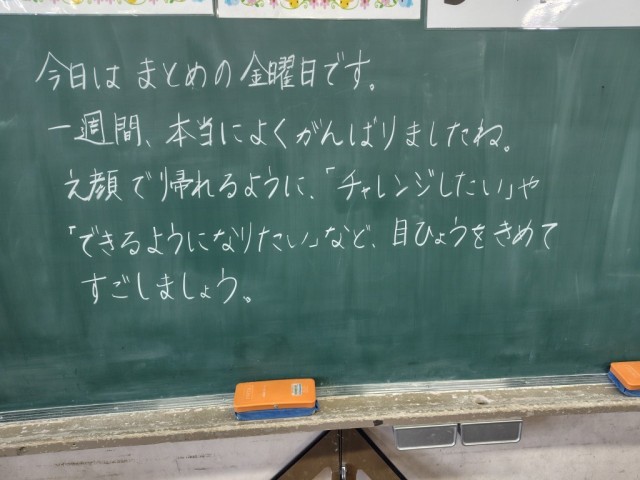 今日は まとめの金曜日です。
一週間、本当によくがんばりましたね。
え顔で帰れるように、「チャレンジしたい」や
「できるようになりたい」など、目ひょうをきめて
すごしましょう。